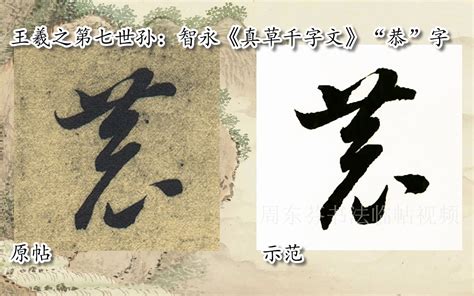 王羲之第七世孙：智永《真草千字文》“恭”字
恭
恭
周东芬书法临帖视频
原帖
示范